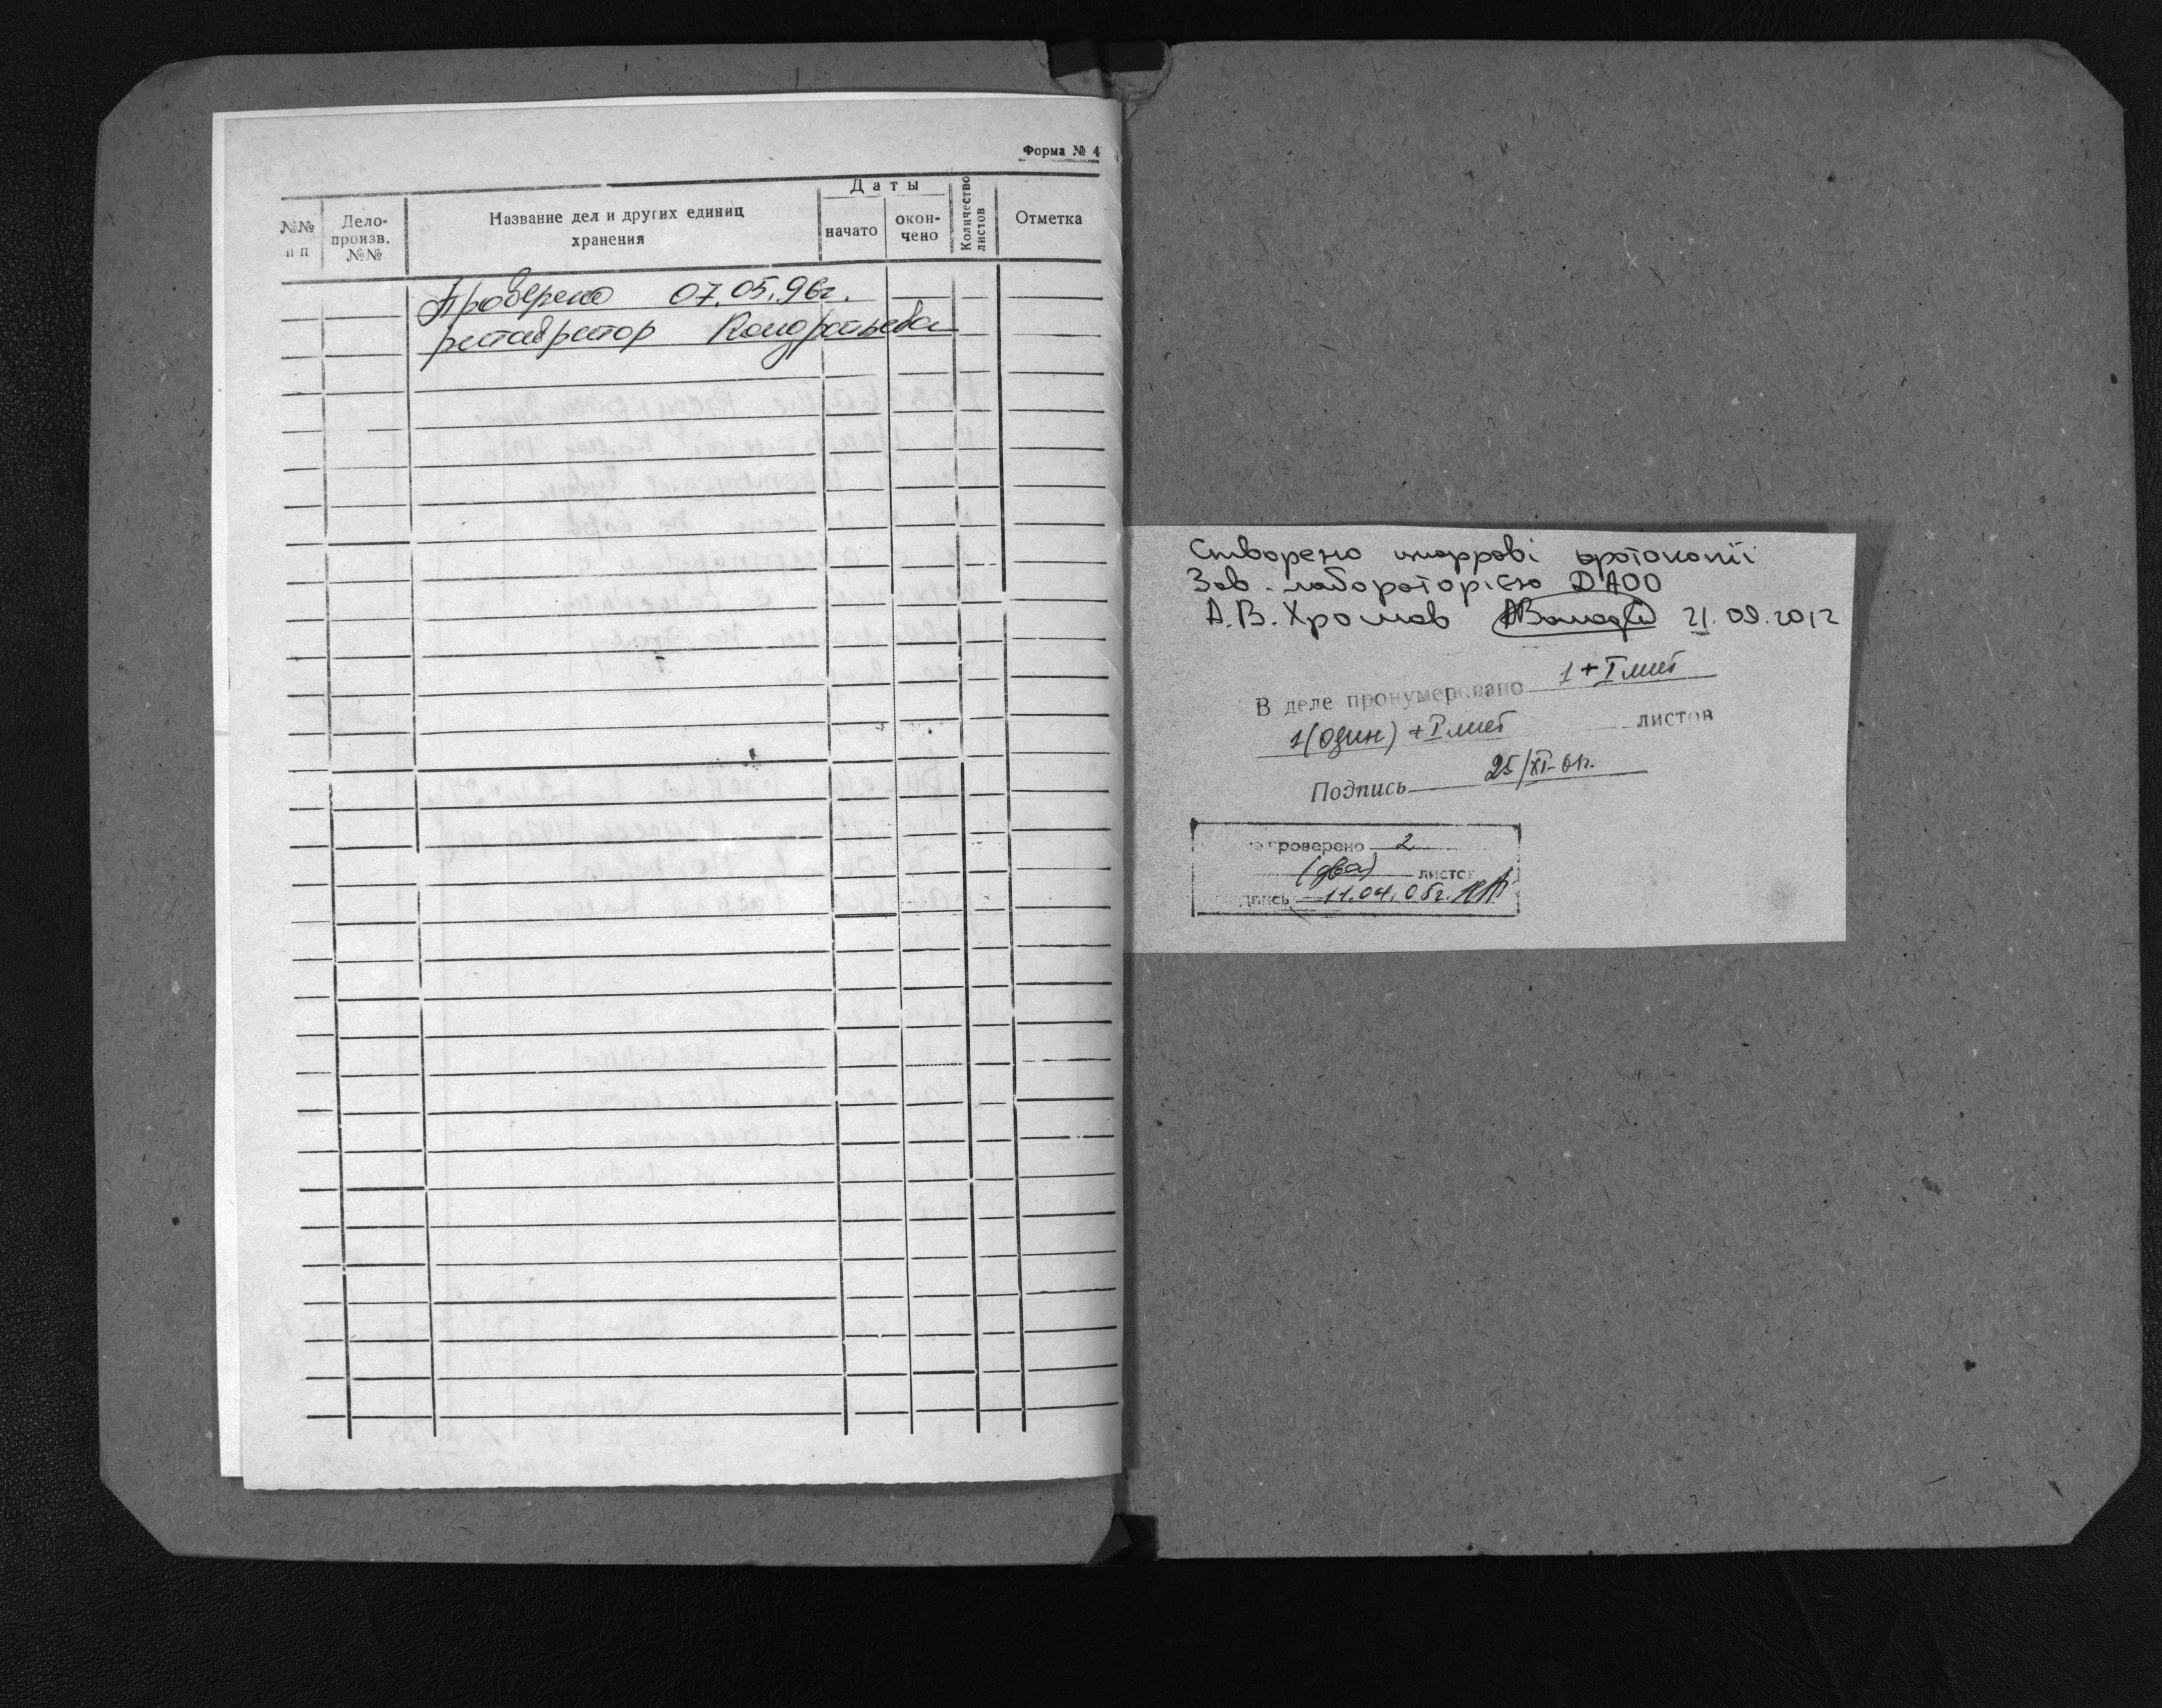 Форма № 4
№№ п п
Дело-произв. №№
Название дел и других единиц хранения
Даты
начато
окон-чено
Количество листов
Отметка
Проверено 07.05.96г.
реставратор Кондратьева
Створено цифрові фотокопії
Зав. лабораторією ДАОО
А.В. Хромов 21.09.2012
В деле пронумеровано 1 + I лист
1 (один) + I лист листов
Подпись 25/XI-01г.
проверено 2
(два) листов
подпись 11.04.05г.